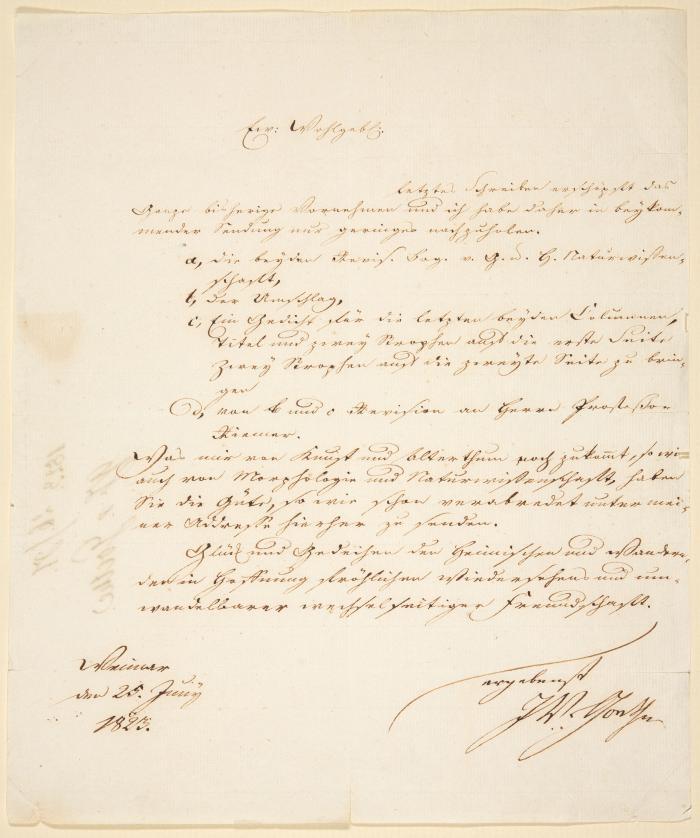 Ew: Wohlgeb:
letztes Schreiben erschöpft das
Ganze bisherige Vornehmen und ich habe daher in beykom-
mender Sendung nur geringes nachzuholen.
a, die beyden Revis. Bog. v. G. u. H. Naturwissen-
schaft,
b, der Umschlag,
c, Ein Gedicht für die letzten beyden Columnen,
Titel und zwey Strophen auf die erste Seite
Zwey Strophen auf die zweyte Seite zu brin-
gen
d, von b und c Revision an Herrn Professor
Riemer.
Was mir von Kunst und Alterthum noch zukommt, so wie
auch von Morphologie und Naturwissenschaft, haben
Sie die Güte, so wie schon verabredet unter mei-
ner Addresse hierher zu senden.
Glück und Gedeihen den Heimischen und Wandern-
den in Hoffnung fröhlichen Wiedersehens und um-
wandelbarer wechselseitiger Freundschaft.
ergebenst
JW. Goethe
Weimar
den 25. Juny
1823.